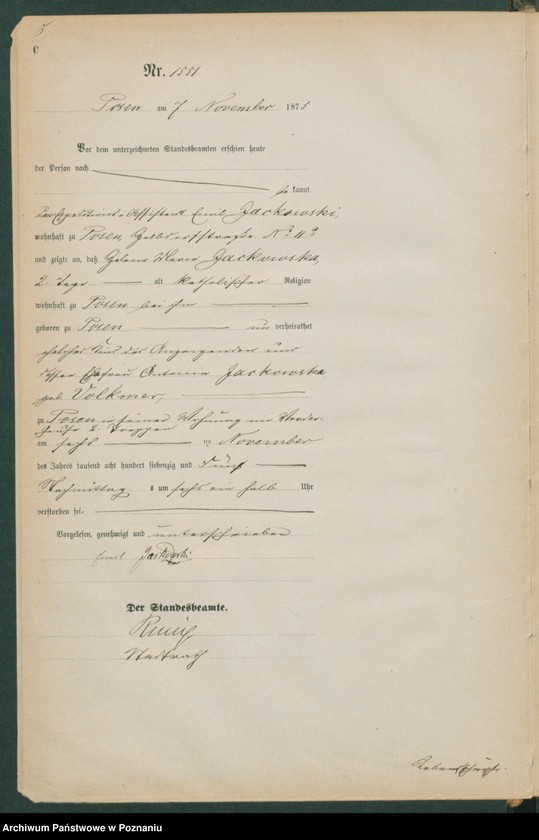 5
C
Nr. 1551
Posen am 7 November 1875
Vor dem unterzeichneten Standesbeamten erschien heute
der Person nach
be kannt
der Expeditions-Assistent Emil Jackowski,
wohnhaft zu Posen, Halbdorfstraße No 4
und zeigte an, daß Helene Maria Jackowska,
2 Tage alt katholischer Religion
wohnhaft zu Posen bei ihm
geboren zu Posen un verheirathet
eheliches Kind des Anzeigenden und
dessen Ehefrau Antonie Jackowska
geb. Volkmer,
zu Posen in seiner Wohnung im Vorder-
hause 2 Treppen
am sechs ten November
des Jahres tausend acht hundert siebenzig und Fünf
Nachmittag s um sechs ein halb Uhr
verstorben sei.
Vorgelesen, genehmigt und unterschrieben
Emil Jackowski
Der Standesbeamte.
Stadtrath
Archiwum Państwowe w Poznaniu